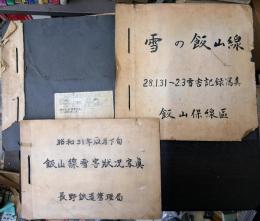 雪の飯山線
28.1.31~2.3雪害記録写真
飯山保線区
飯山線雪害状況写真
長野鉄道管理局